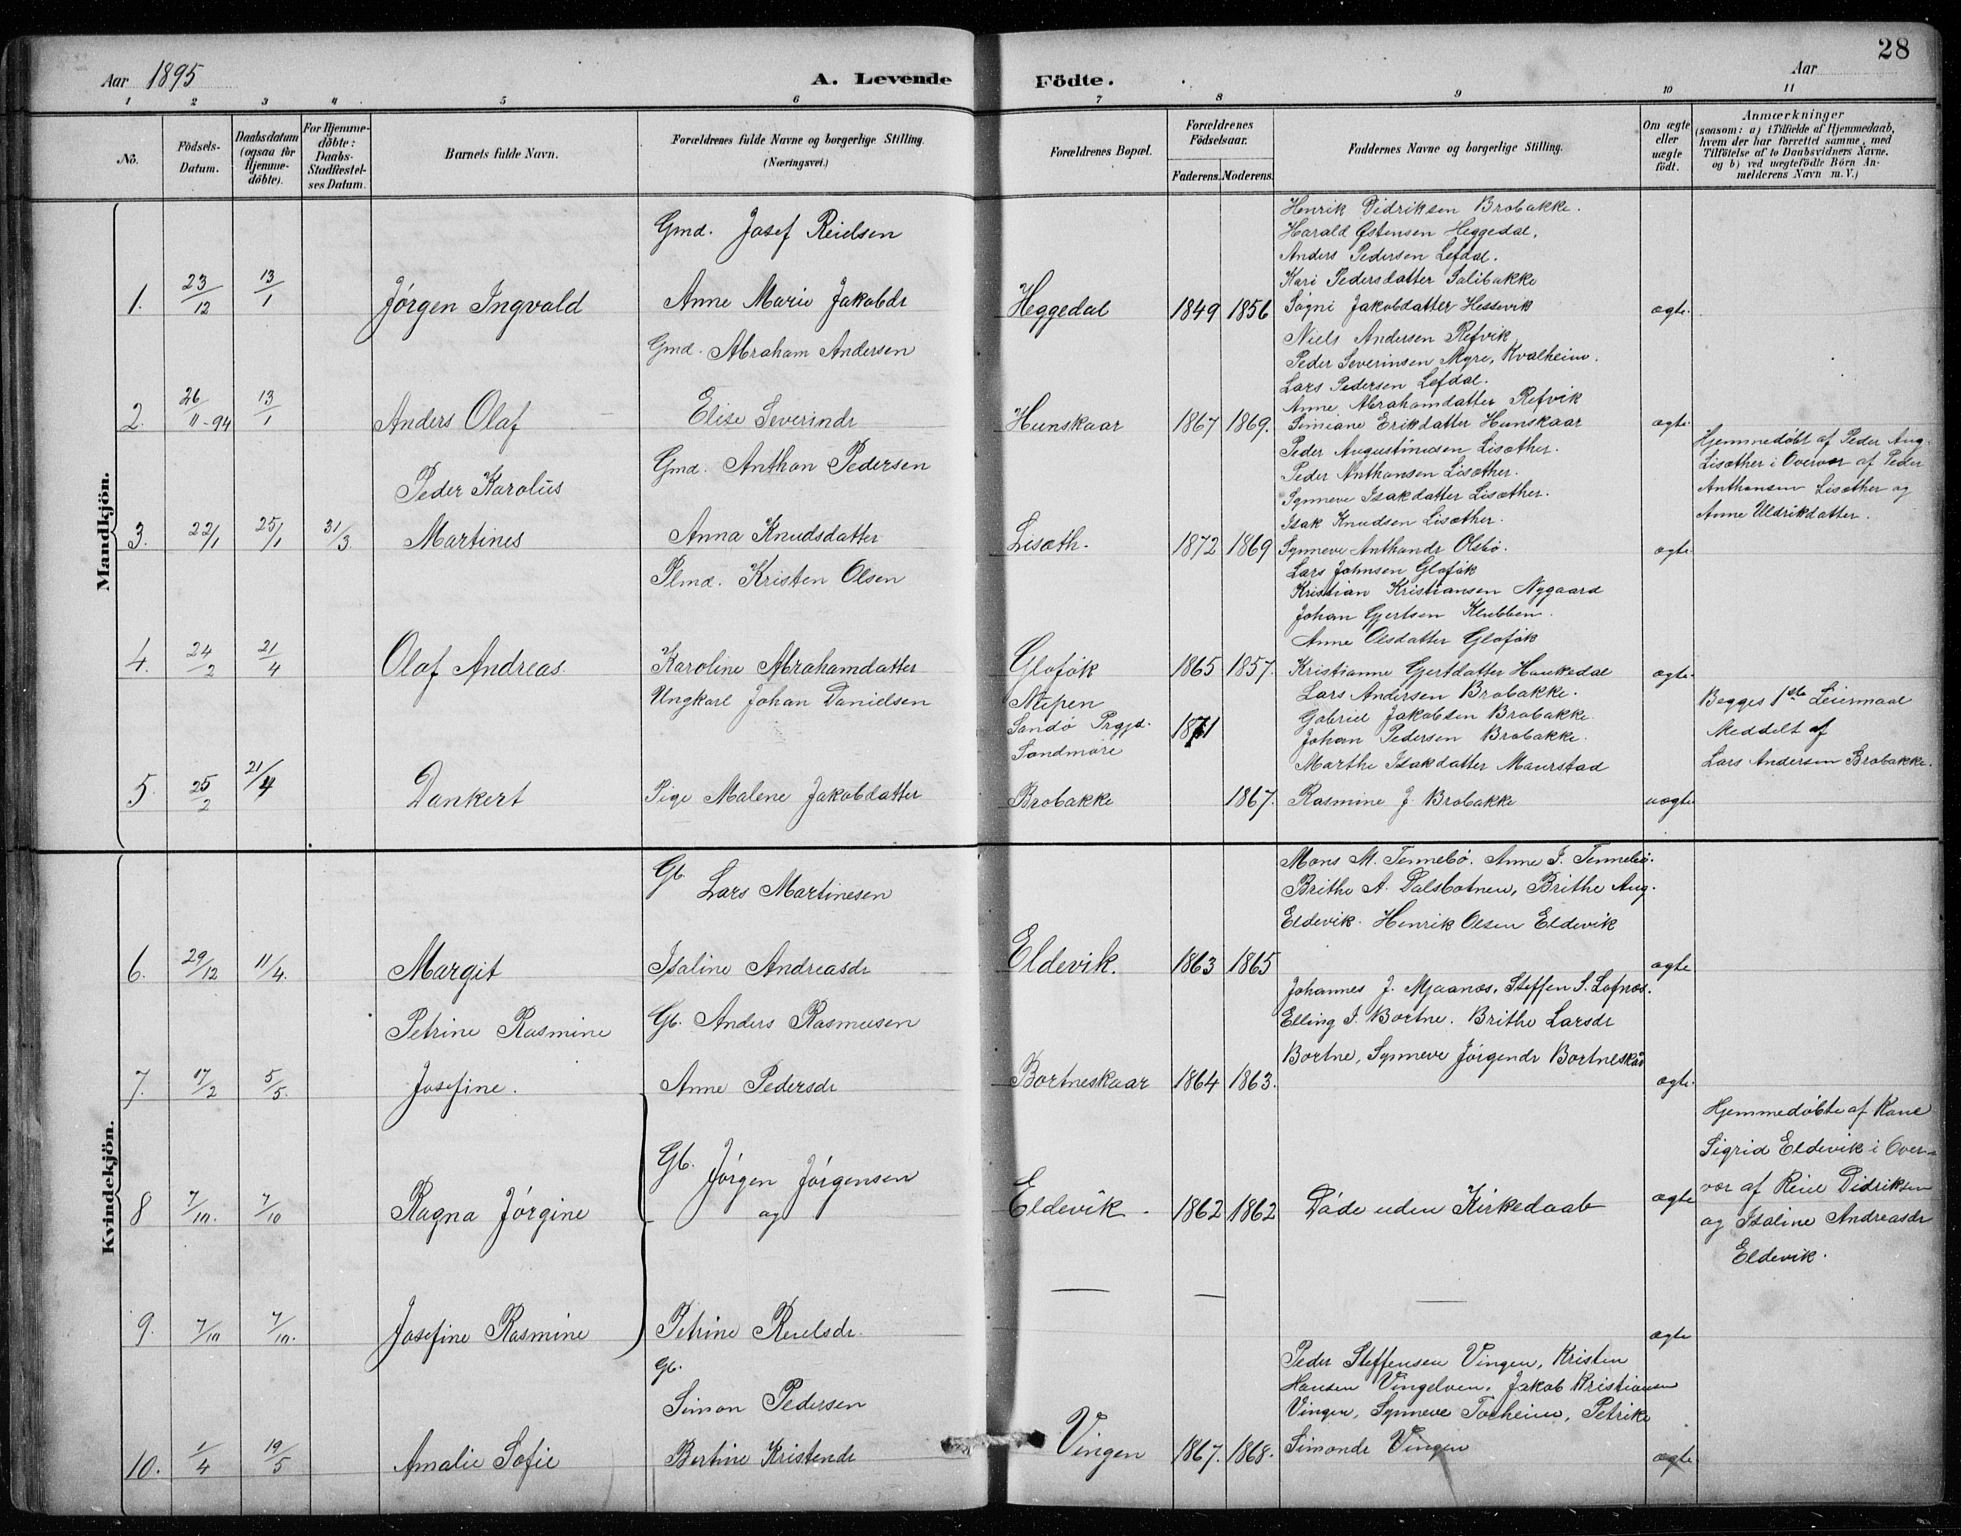 Aar 1895
A. Levende Födte.
Aar
28
1 2 3 4 5 6 7 8 9 10 11
No.
Födsels-Datum.
Daabsdatum (ogsaa for Hjemmedöbte).
For Hjemmedöbte: Daabs-Stadfæstelses Datum.
Barnets fulde Navn.
Forældrenes fulde Navne og borgerlige Stilling.
(Næringsvei.)
Forældrenes Bopæl.
Forældrenes Födselsaar.
Faderens. Moderens.
Faddernes Navne og borgerlige Stilling.
Om ægte eller uægte født.
Anmærkninger
(saasom: a) i Tilfælde af Hjemmedaab,
hvem der har forrettet samme, med
Tilföielse af to Daabsvidners Navne,
og b) ved uægtefödte Börn An-
melderens Navn m. V.)
Mandkjön.
1. 23/12 13/1 Jørgen Ingvald
Gmd. Josef Reielsen
Anne Marie Jakobdr
Heggedal 1849 1856
Henrik Didriksen Brobakke.
Harald Østensen Heggedal.
Anders Pedersen Lefdal.
Kari Pedersdatter Salibakke
Søgni Jakobdatter Hessevik
ægte.
2. 26/11-94 13/1 Anders Olaf
Gmd. Abraham Andersen
Elise Severindr
Hunskaar 1867 1869.
Niels Andersen Refvik
Peder Severinsen Myre, Kvalheim.
Lars Pedersen Lefdal.
Anne Abrahamdatter Refvik
Simiane Erikdatter Hunskaar
ægte.
3. 22/1 25/1 31/3. Peder Karolus
Martines
Gmd. Anthon Pedersen
Anna Knudsdatter
Lisæth. 1872 1869
Peder Augustinusen Lisæther.
Peder Anthonsen Lisæther.
Synneve Isakdatter Lisæther.
Isak Knudsen Lisæther.
Synneve Anthondr Olsbø.
ægte.
Hjemmedøbt af Peder Aug.
Lisæther i Overvær af Peder
Anthonsen Lisæther og
Anne Uldrikdatter.
4. 24/2 21/4 Olaf Andreas
Plmd. Kristen Olsen
Karoline Abrahamdatter
Gloføk 1865 1857.
Lars Johnsen Gloføk
Kristian Kristiansen Nygaard
Johan Gjertsen Klubben.
Anne Olsdatter Gloføk
Kristianne Gjertdatter Haukedal
ægte.
5. 25/2 21/4 Dankert
Ungkarl Johan Danielsen
Pige Malene Jakobdatter
Nipen
Sandø Prgjd.
Søndmøre 1871
Brobakke 1867.
Lars Andersen Brobakke.
Gabriel Jakobsen Brobakke
Johan Pedersen Brobakke.
Marthe Isakdatter Maurstad
Rasmine J. Brobakke
uægte
Begges 1ste Leiermaal
Meddelt af
Lars Andersen Brobakke.
Kvindekjön.
6. 29/12 11/4. Margit
Gb. Lars Martinesen
Isaline Andreasdr
Eldevik. 1863 1865
Mons M. Tennebø. Anne J. Tennebø.
Brithe A. Dalsbotnen, Brithe Aug.
Eldevik. Henrik Olsen Eldevik
ægte
7. 17/2 5/5. Petrine Rasmine
Josefine.
Gb. Anders Rasmusen
Anne Pedersdr
Bortneskaar 1864 1863.
Johannes J. Myaanæs, Steffen S. Lofnæs.
Elling J. Bortne. Brithe Larsdr
Bortne, Synneve Jørgendr Bortneskår
ægte.
8 7/10. 7/10 Ragna Jørgine
Gb. Jørgen Jørgensen
og
Eldevik 1862 1862
Døde uden Kirkedaab
ægte
Hjemmedøbte af Kone
Sigrid Eldevik i Over-
vær af Reiel Didriksen
og Isaline Andreasdr
Eldevik.
9. 7/10 7/10. Josefine Rasmine
Petrine Reielsdr.
ægte
10. 1/4 19/5 Amalie Sofie
Gb.
Simon Pedersen
Bertine Kristendr
Vingen 1867. 1868.
Peder Steffensen Vingen, Kristen
Hansen Vingelven, Jakob Kristiansen
Vingen, Synneve Torheim, Petrike
Simondr Vingen
ægte